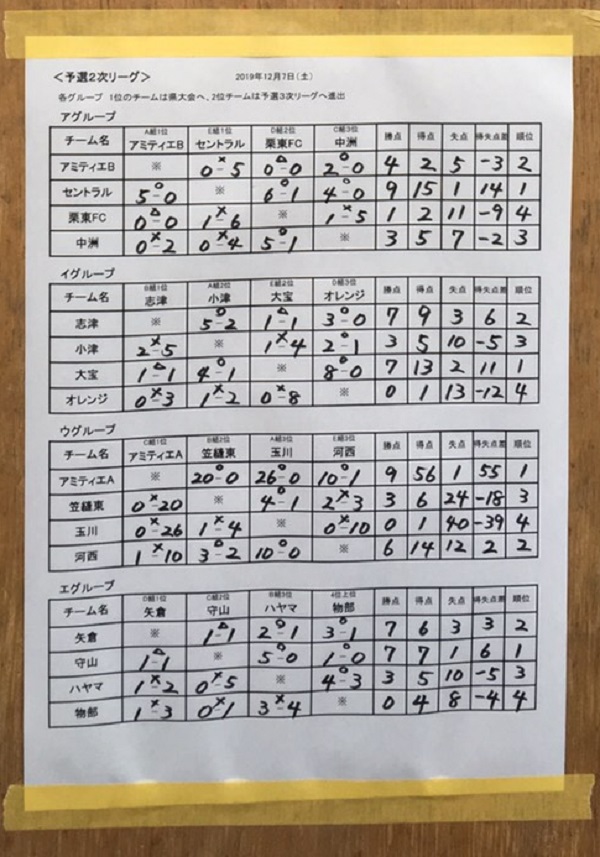 <予選2次リーグ> 2019年12月7日(土)
各グループ 1位のチームは県大会へ、2位チームは予選3次リーグへ進出
アグループ
チーム名 A組1位 アミティエB E組1位 セントラル D組2位 栗東FC C組3位 中洲 勝点 得点 失点 得失点差 順位
アミティエB ※ 0×-5 0△-0 2○-0 4 2 5 -3 2
セントラル 5○-0 ※ 6○-1 4○-0 9 15 1 14 1
栗東FC 0△-0 1×-6 ※ 1×-5 1 2 11 -9 4
中洲 0×-2 0×-4 5○-1 ※ 3 5 7 -2 3
イグループ
チーム名 B組1位 志津 A組2位 小津 E組2位 大宝 D組3位 オレンジ 勝点 得点 失点 得失点差 順位
志津 ※ 5○-2 1△-1 3○-0 7 9 3 6 2
小津 2×-5 ※ 1×-4 2○-1 3 5 10 -5 3
大宝 1△-1 4○-1 ※ 8○-0 7 13 2 11 1
オレンジ 0×-3 1×-2 0×-8 ※ 0 1 13 -12 4
ウグループ
チーム名 C組1位 アミティエA B組2位 笠縫東 A組3位 玉川 E組3位 河西 勝点 得点 失点 得失点差 順位
アミティエA ※ 20○-0 26○-0 10○-1 9 56 1 55 1
笠縫東 0×-20 ※ 4○-1 2×-3 3 6 24 -18 3
玉川 0×-26 1×-4 ※ 0×-10 0 1 40 -39 4
河西 1×-10 3○-2 10○-0 ※ 6 14 12 2 2
エグループ
チーム名 D組1位 矢倉 C組2位 守山 B組3位 ハヤマ 4位上位 物部 勝点 得点 失点 得失点差 順位
矢倉 ※ 1△-1 2○-1 3○-1 7 6 3 3 2
守山 1△-1 ※ 5○-0 1○-0 7 7 1 6 1
ハヤマ 1×-2 0×-5 ※ 4○-3 3 5 10 -5 3
物部 1×-3 0×-1 3×-4 ※ 0 4 8 -4 4